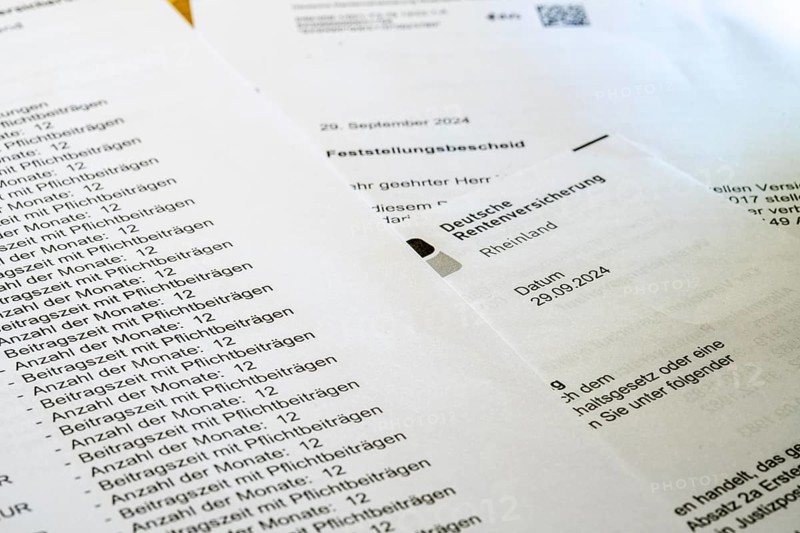 ungen
flichtbeiträgen
ate: 12
Pflichtbeiträgen
nate: 12
Pflichtbeiträgen
Monate: 12
mit Pflichtbeiträgen
Monate: 12
zeit mit Pflichtbeiträgen
der Monate: 12
szeit mit Pflichtbeiträgen
der Monate: 12
gszeit mit Pflichtbeiträgen
hl der Monate: 12
tragszeit mit Pflichtbeiträgen
zahl der Monate: 12
eitragszeit mit Pflichtbeiträgen
Anzahl der Monate: 12
Beitragszeit mit Pflichtbeiträgen
- Anzahl der Monate: 12
- Beitragszeit mit Pflichtbeiträgen
- Anzahl der Monate: 12
- Beitragszeit mit Pflichtbeiträgen
- Anzahl der Monate: 12
- Beitragszeit mit Pflichtbeiträgen
- Anzahl der Monate: 12
- Beitragszeit mit Pflichtbeiträgen
- Anzahl der Monate: 12
- Beitragszeit mit Pflichtbeiträgen
- Anzahl der Monate: 12
- Beitragszeit mit Pflichtbeiträgen
- Anzahl der Monate: 12
- Beitragszeit mit Pflichtbeiträgen
- Anzahl der Monate: 12
UR
EUR
29. September 2024
Feststellungsbescheid
ehr geehrter Herr
diesem
ellen Versi
017 stell
er verb
49 A
Deutsche
Rentenversicherung
Rheinland
Datum
29.09.2024
g
ch dem
haltsgesetz oder eine
n Sie unter folgender
en handelt, das ge
Absatz 2a Erste
n Justizpos
PHOTO12